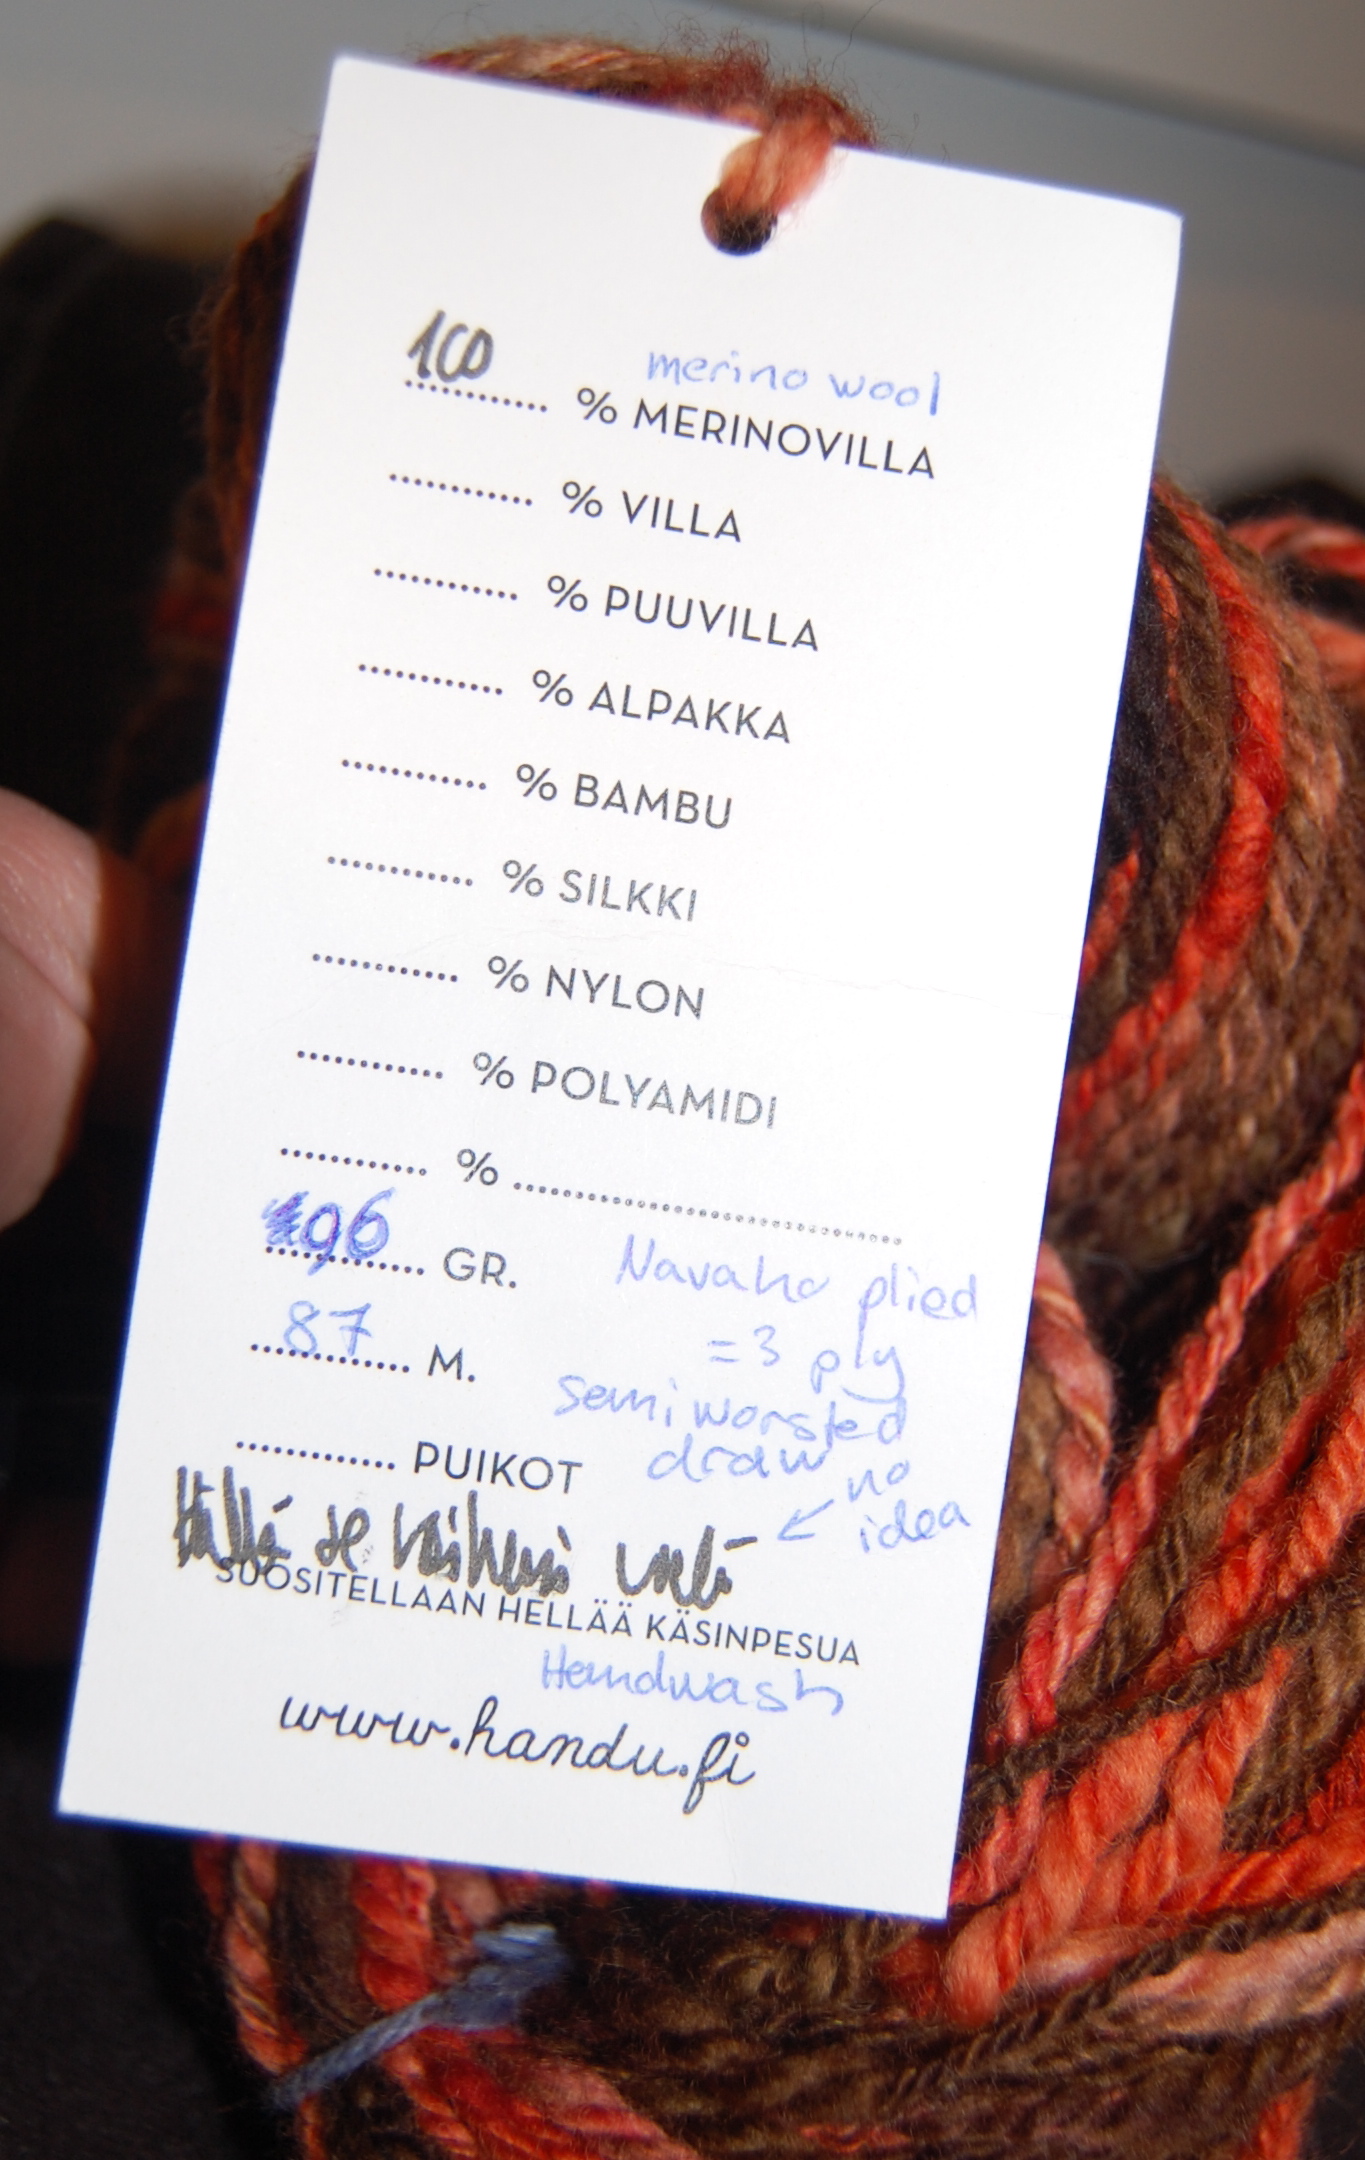 merino wool
100 % MERINOVILLA
% VILLA
% PUUVILLA
% ALPAKKA
% BAMBU
% SILKKI
% NYLON
% POLYAMIDI
%
96 GR.
Navaho plied
87 M.
= 3 ply
semiworsted
draw
PUIKOT
no
idea
se
SUOSITELLAAN HELLÄÄ KÄSINPESUA
Handwash
www.handu.fi